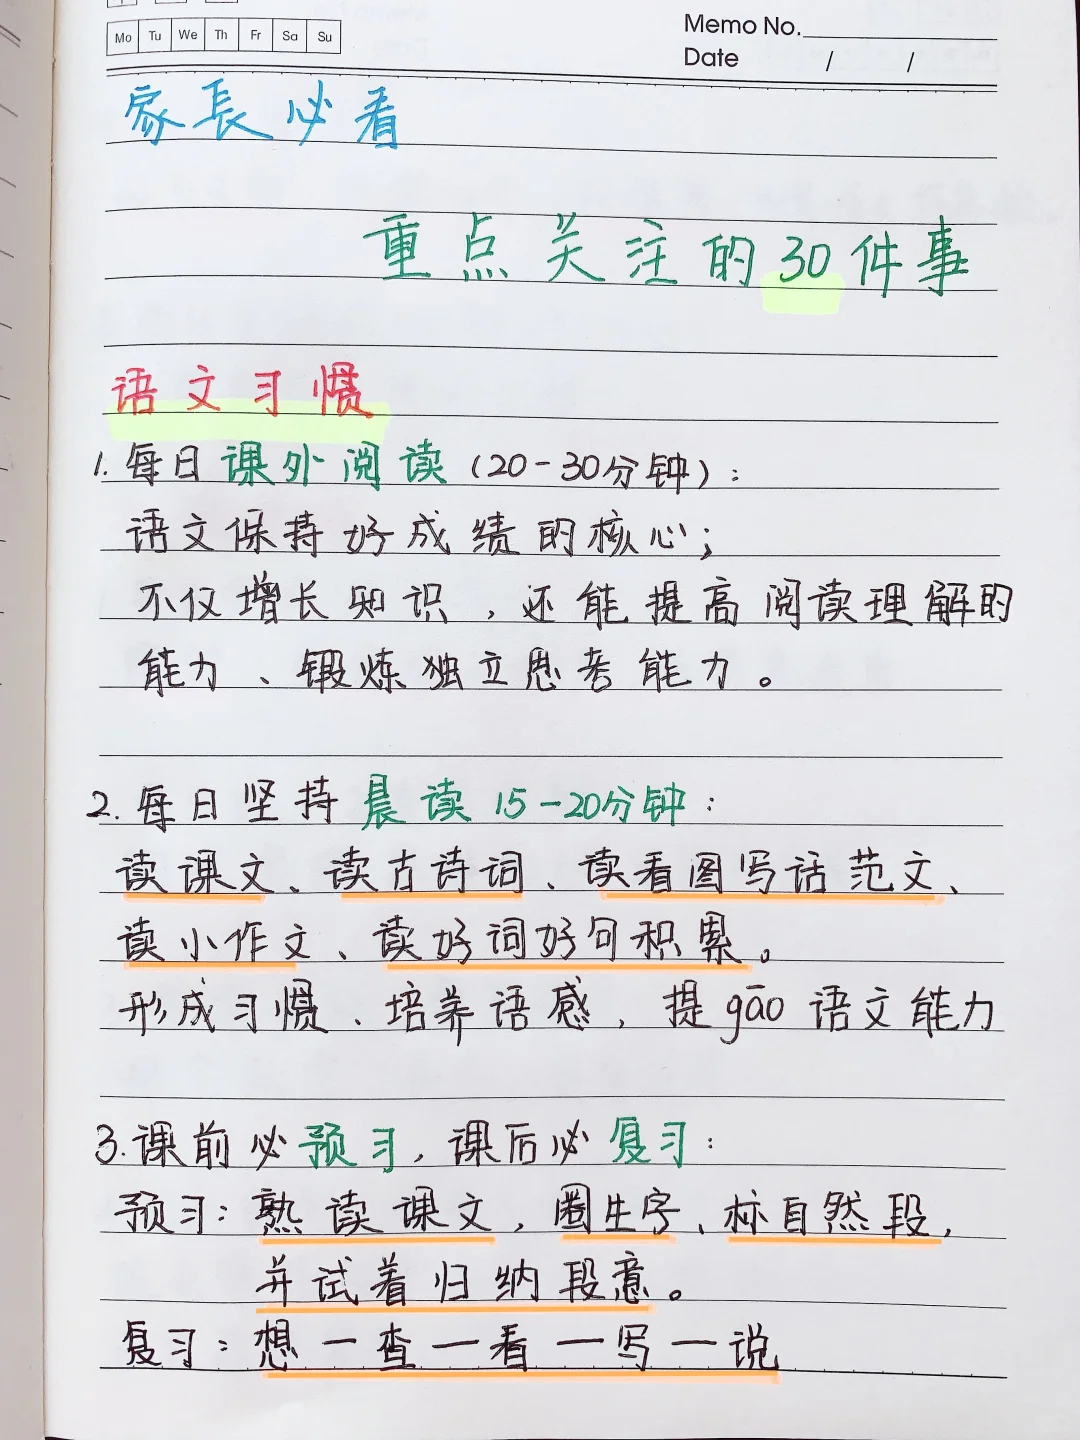 Mo Tu We Th Fr Sa Su
Memo No.
Date / /
家長必看
重点关注的30件事
语文习惯
1.每日课外阅读(20-30分钟):
语文保持好成绩的核心;
不仅增长知识,还能提高阅读理解的
能力、锻炼独立思考能力。
2.每日坚持晨读15-20分钟:
读课文、读古诗词、读看图写话范文、
读小作文、读好词好句积累。
形成习惯、培养语感,提gāo语文能力
3.课前必预习,课后必复习:
预习:熟读课文,圈生字、标自然段,
并试着归纳段意。
复习:想一查一看一写一说